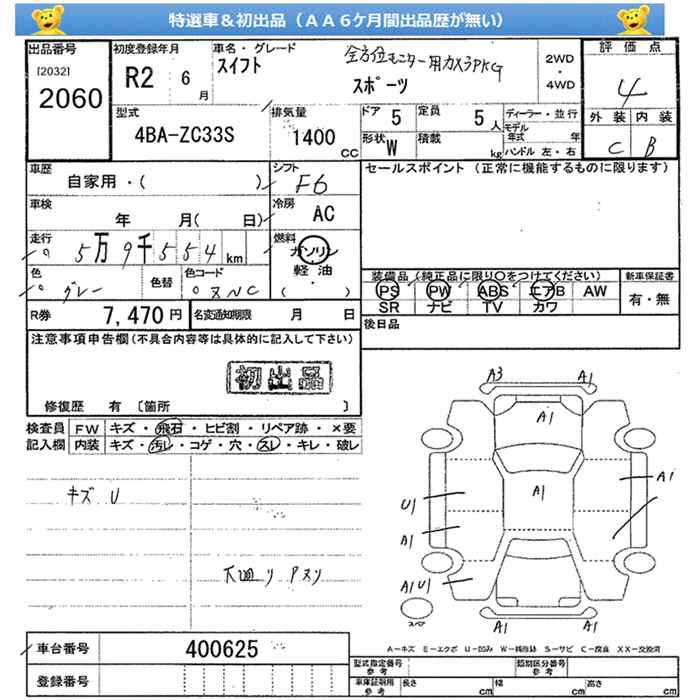 特選車＆初出品（ＡＡ６ケ月間出品歴が無い）
出品番号
[2032]
2060
初度登録年月
R2 6 月
車名・グレード
スイフト
全方位モニター用カメラPKG
スポーツ
2WD
・
4WD
評価点
4
外装 内装
C B
型式
4BA-ZC33S
排気量
1400 CC
ドア 5
定員 5 人
形状 W
積載 kg
ディーラー・並行
モデル年式 年
ハンドル 左・右
車歴
自家用・( )
シフト
F6
セールスポイント（正常に機能するものに限ります）
車検
年 月( 日)
冷房
AC
走行
5万9千554km
燃料
ガソリン
・
軽油
( ・ )
色
グレー
色替
色コード
装備品（純正品に限り○をつけてください）
PS PW ABS エアB AW
SR ナビ TV カワ
新車保証書
有・無
R券 7,470 円
名変通知期限 月 日
後日品
注意事項申告欄(不具合内容等は具体的に記入して下さい)
初出品
修復歴 有 [箇所 ]
検査員記入欄
FW キズ・飛石・ヒビ割・リペア跡・×要
内装 キズ・汚レ・コゲ・穴・スレ・キレ・破レ
キズ U
A3 A1
A1
A1
A1
U1
A1
A1U1
A1 A1
スペア
A－キズ E－エクボ U－凹み W－補修跡 S－サビ C－腐食 XX－交換済
車台番号 400625
登録番号
型式指定番号 参考
類別区分番号 参考
車庫証明用 参考
長さ cm 幅 cm 高さ cm